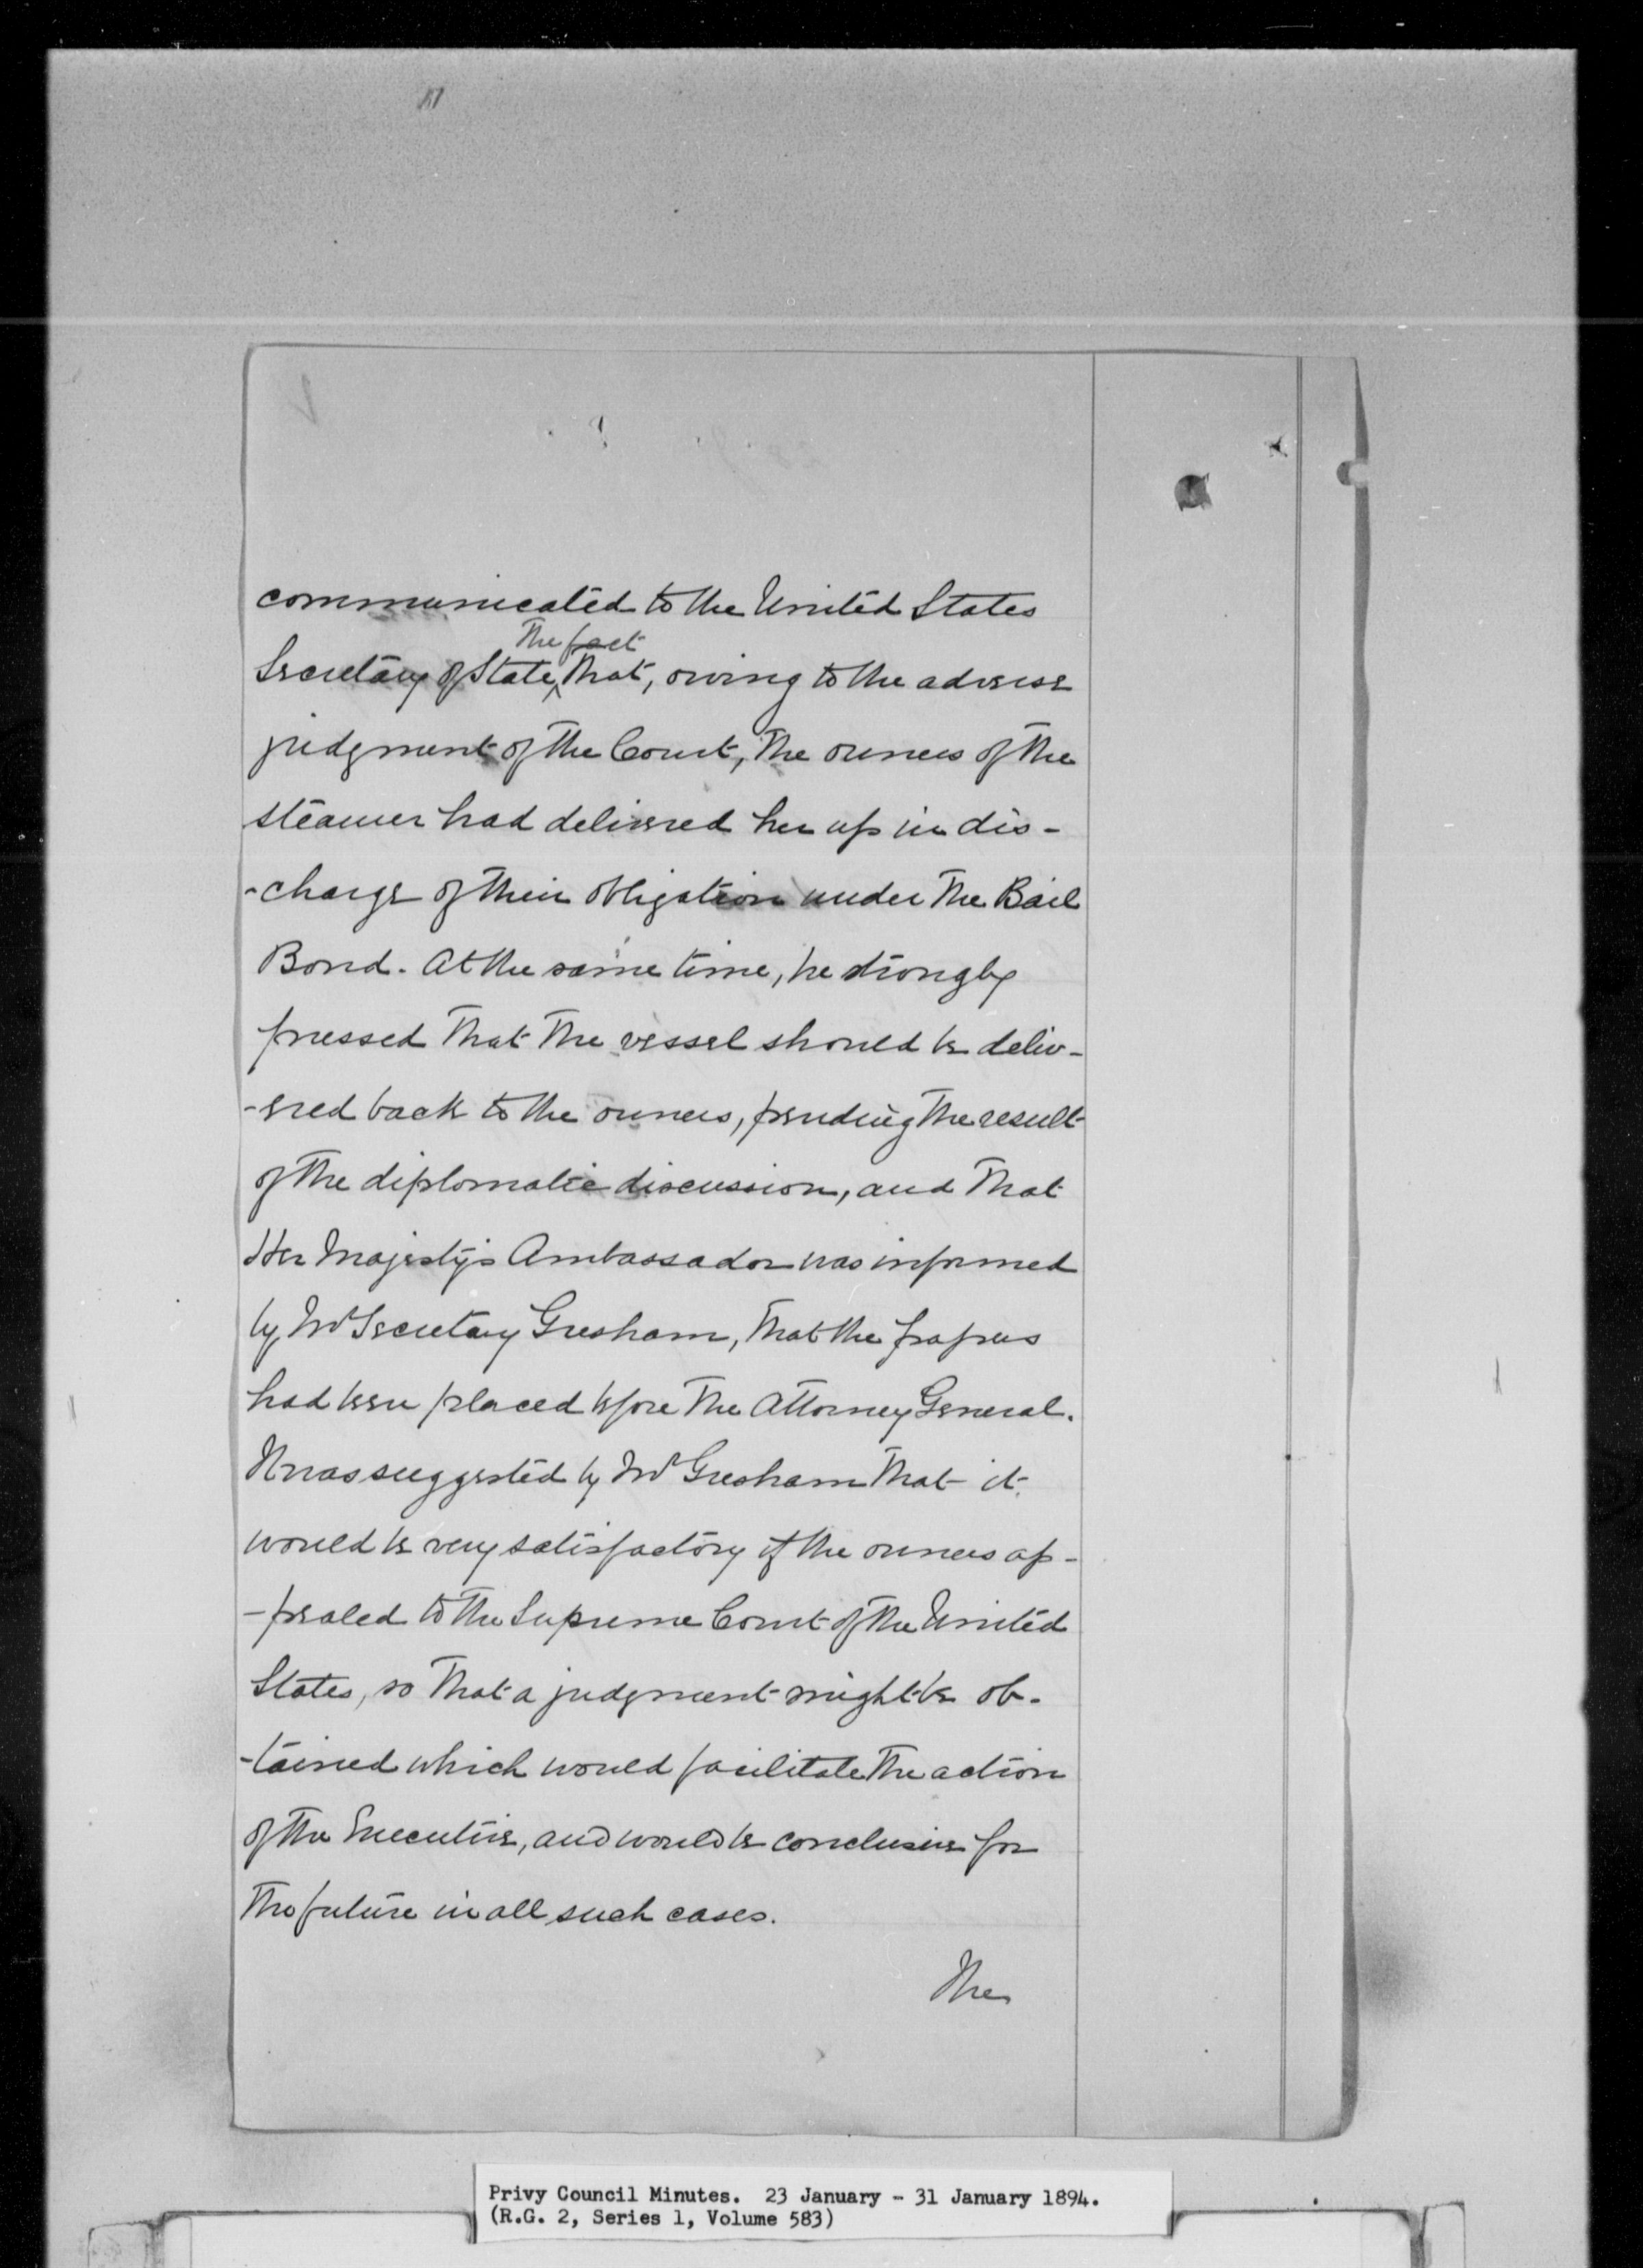 communicated to the United States
The fact
Secretary of State, ^ that, owing to the adverse
judgment of the Court, the owners of the
steamer had delivered her up in dis-
-charge of their obligation under the Bail
Bond. At the same time, he strongly
pressed that the vessel should be deliv-
-ered back to the owners, pending the result
of the diplomatic discussion, and that
Her Majesty's Ambassador was informed
by Mr Secretary Gresham, that the papers
had been placed before the Attorney General.
It was suggested by Mr Gresham that it
would be very satisfactory if the owners ap-
-pealed to the Supreme Court of the United
States, so that a judgment might be ob-
-tained which would facilitate the action
of the Executive, and would be conclusive for
the future in all such cases.
The
Privy Council Minutes. 23 January - 31 January 1894.
(R.G. 2, Series 1, Volume 583)